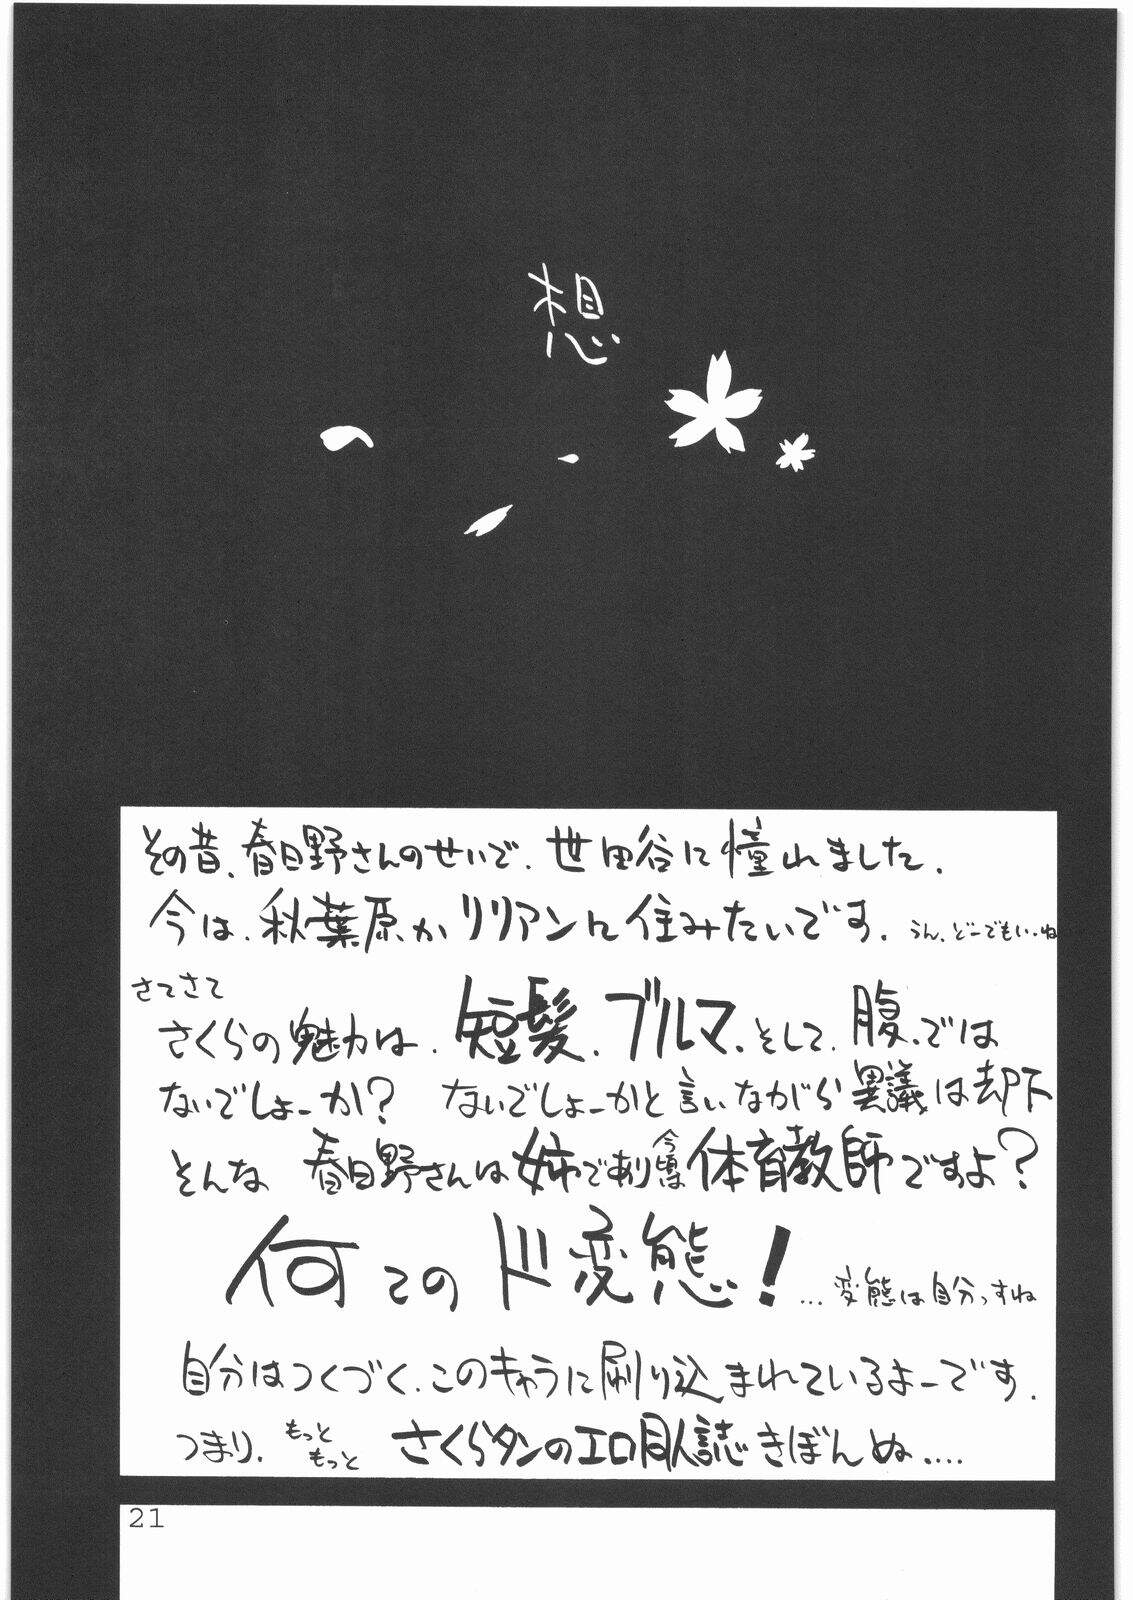 想
その昔、春日野さんのせいで、世田谷に憧れました。
今は、秋葉原かリリアンに住みたいです。うん、どーでもい、ね
さてさて
さくらの魅力は、短髪、ブルマ、そして、腹、では
ないでしょーか? ないでしょーかと言いながら異議は却下
そんな 春日野さんは姉であり今頃は体育教師ですよ?
何てのド変態!...変態は自分っすね
自分はつくづく、このキャラに刷り込まれているよーです。
つまり、もっともっと さくらタンのエロ同人誌きぼんぬ....
21